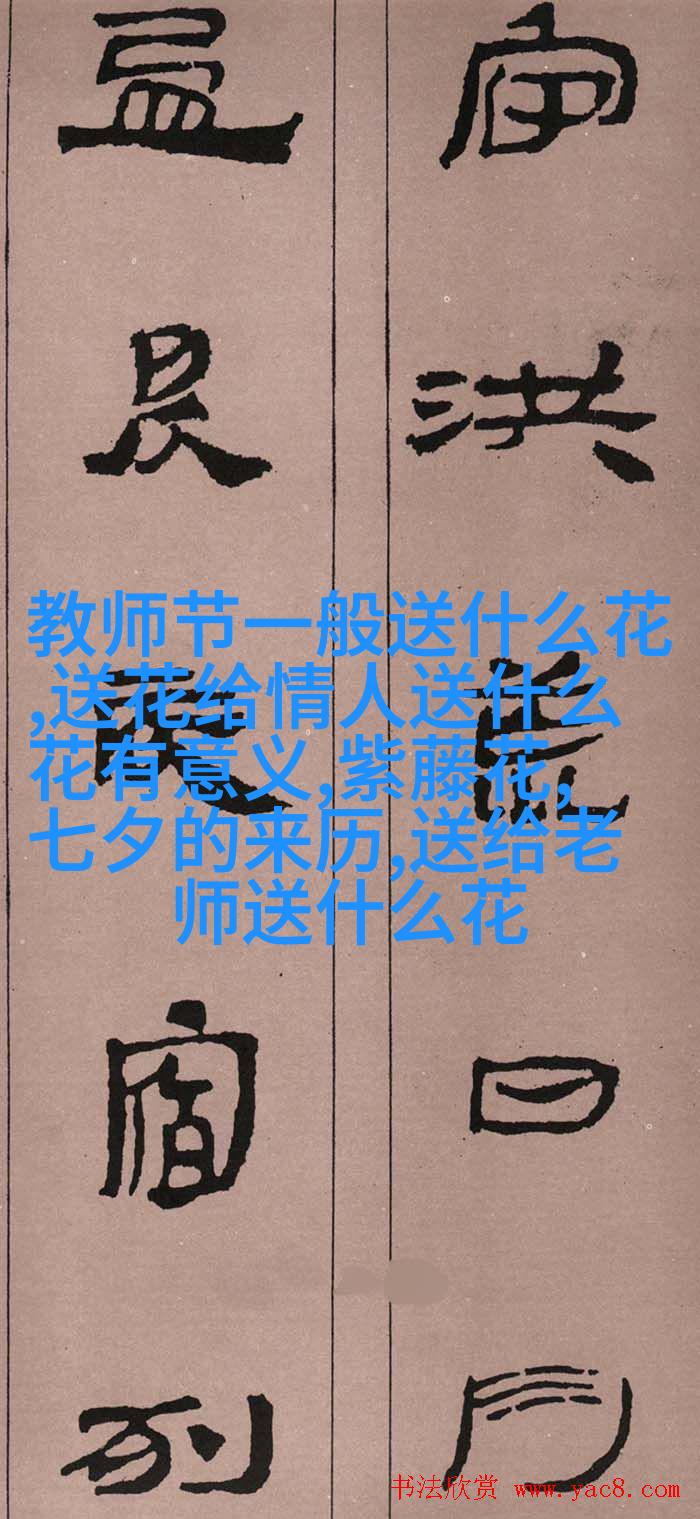 宙洪荒日月
盈昃辰宿列
教师节一般送什么花
,送花给情人送什么
花有意义,紫藤花,
七夕的来历,送给老
师送什么花
书法欣赏 www.yac8.com